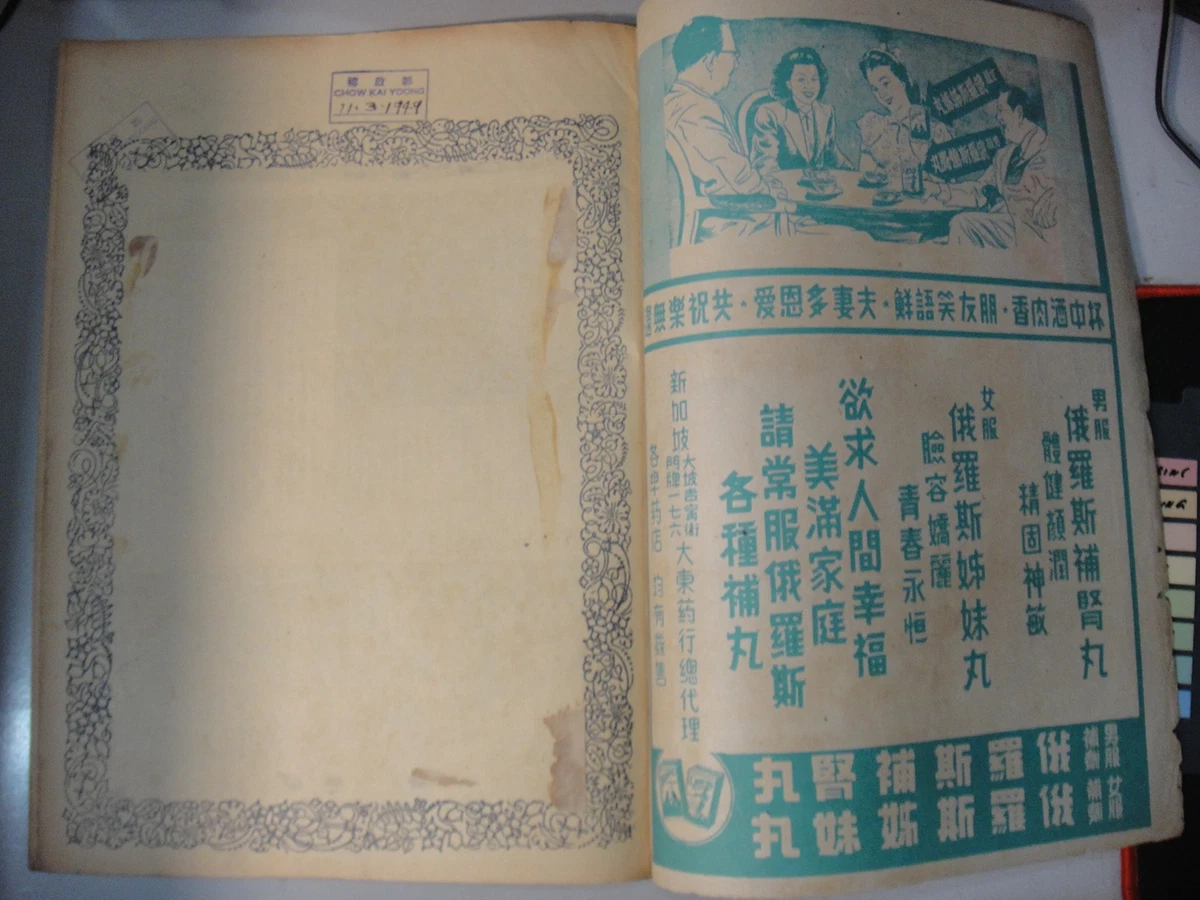 CHOW KAI YOONG
11.3.1949
杯中酒肉香・朋友笑語鮮・夫妻多恩愛・共祝樂無
男服
俄羅斯補腎丸
體健顏潤
精固神敏
女服
俄羅斯姊妹丸
臉容嬌麗
青春永恒
欲求人間幸福
美滿家庭
請常服俄羅斯
各種補丸
新加坡
門牌一七六
大東药行總代理
男服
俄羅斯補腎丸
女服
俄羅斯姊妹丸